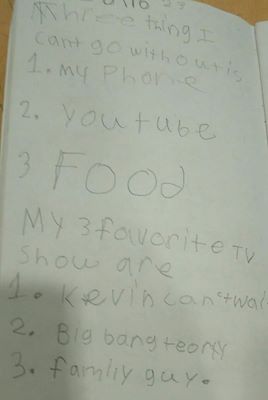 Three thing I
cant go without is.
1. My Phone
2. Youtube
3 Food
My 3 favorite TV
show are
1. Kevin can't wai
2. Big bang teory
3. family guy.